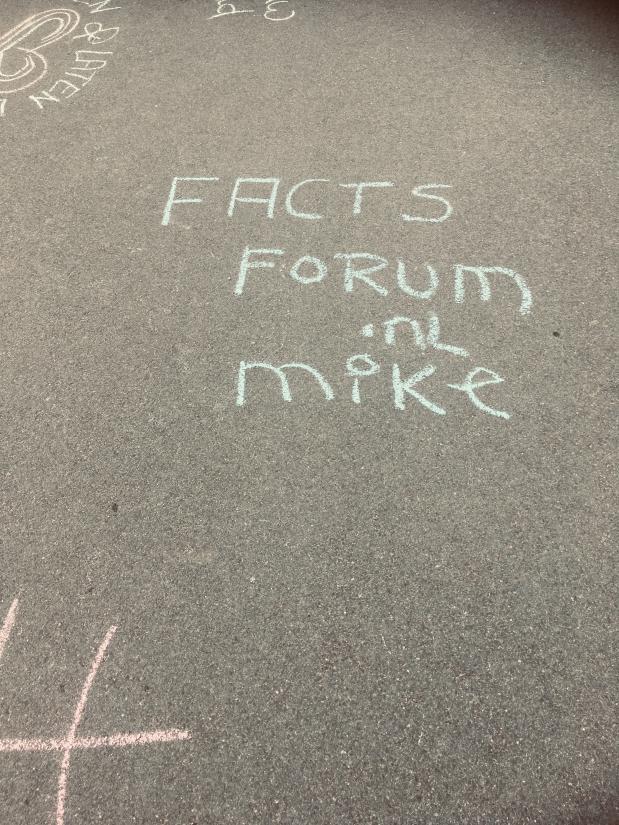 & LATEN
FACTS
FORUM
.nL
mike